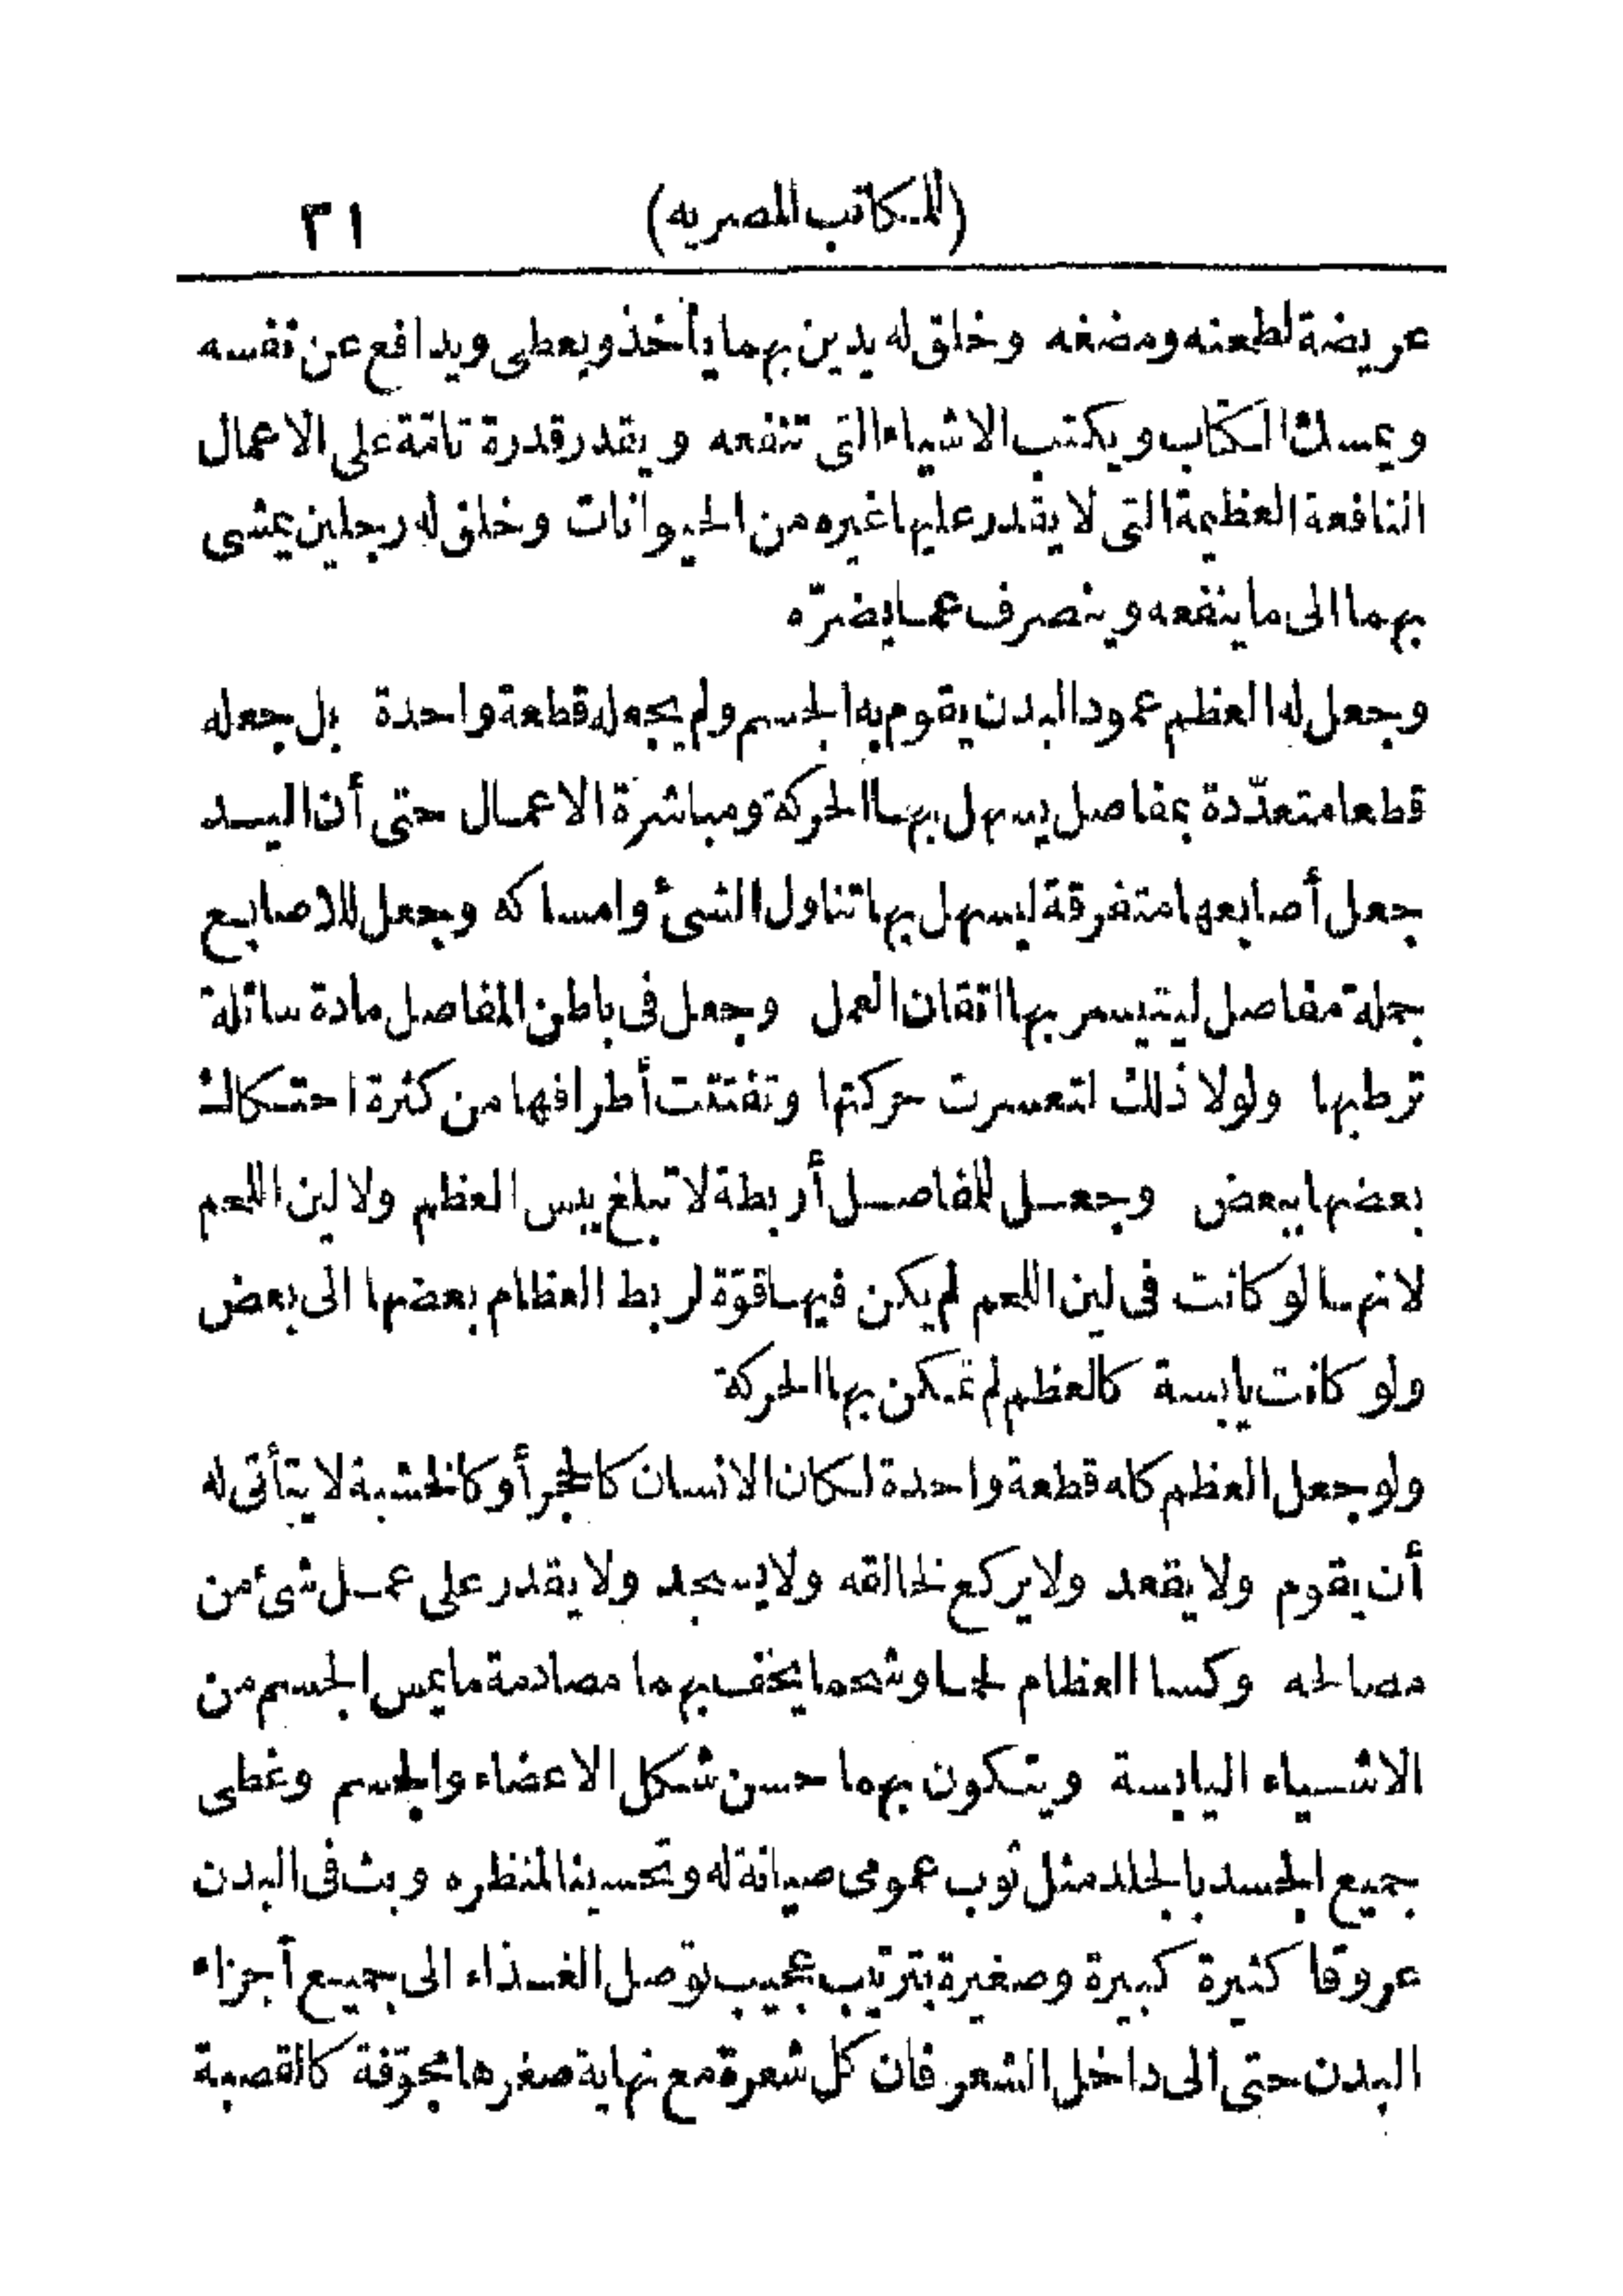 (للمكاتب المصريه) ٣١
عريضة لطحنه ومضغه وخلق له يدين بهما يأخذ ويعطى ويدافع عن نفسه
ويمسك الكتاب ويكتب الاشياء التى تنفعه ويقدر قدرة تامّة على الاعمال
النافعة العظيمة التى لا يقدر عليها غيره من الحيوانات وخلق له رجلين يمشى
بهما الى ما ينفعه وينصرف عما يضرّه
وجعل له العظم عمود البدن يقوم به الجسم ولم يجعله قطعة واحدة بل جعله
قطعا متعدّدة بمفاصل يسهل بها الحركة ومباشرة الاعمال حتى أن اليد
جعل أصابعها متفرقة ليسهل بها تناول الشئ وامساكه وجعل للاصابع
جملة مفاصل ليتيسر بها اتقان العمل وجعل فى باطن المفاصل مادة سائلة
ترطبها ولولا ذلك لتعسرت حركتها وتفتتت أطرافها من كثرة احتكاك
بعضها ببعض وجعل للمفاصل أربطة لا تبلغ يبس العظم ولا لين اللحم
لانها لو كانت فى لين اللحم لم يكن فيها قوّة لربط العظام بعضها الى بعض
ولو كانت يابسة كالعظم لم تمكن بها الحركة
ولو جعل العظم كله قطعة واحدة لكان الانسان كالحجر أو كالخشبة لا يتأتى له
أن يقوم ولا يقعد ولا يركع لخالقه ولا يسجد ولا يقدر على عمل شئ من
مصالحه وكسا العظام لحما وشحما يخف بهما مصادمة ما يمس الجسم من
الاشياء اليابسة ويتكون بهما حسن شكل الاعضاء والجسم وغطى
جميع الجسد بالجلد مثل ثوب عمومى صيانة له وتحسينا لمنظره وبث فى البدن
عروقا كثيرة كبيرة وصغيرة بترتيب عجيب توصل الغذاء الى جميع أجزاء
البدن حتى الى داخل الشعر فان كل شعرة مع نهاية صغرها مجوّفة كالقصبة